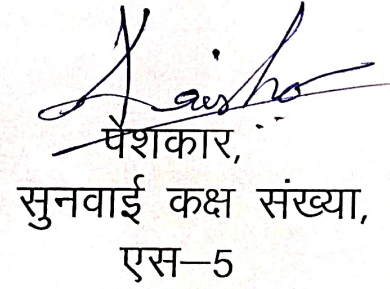 पेशकार,
सुनवाई कक्ष संख्या,
एस—5